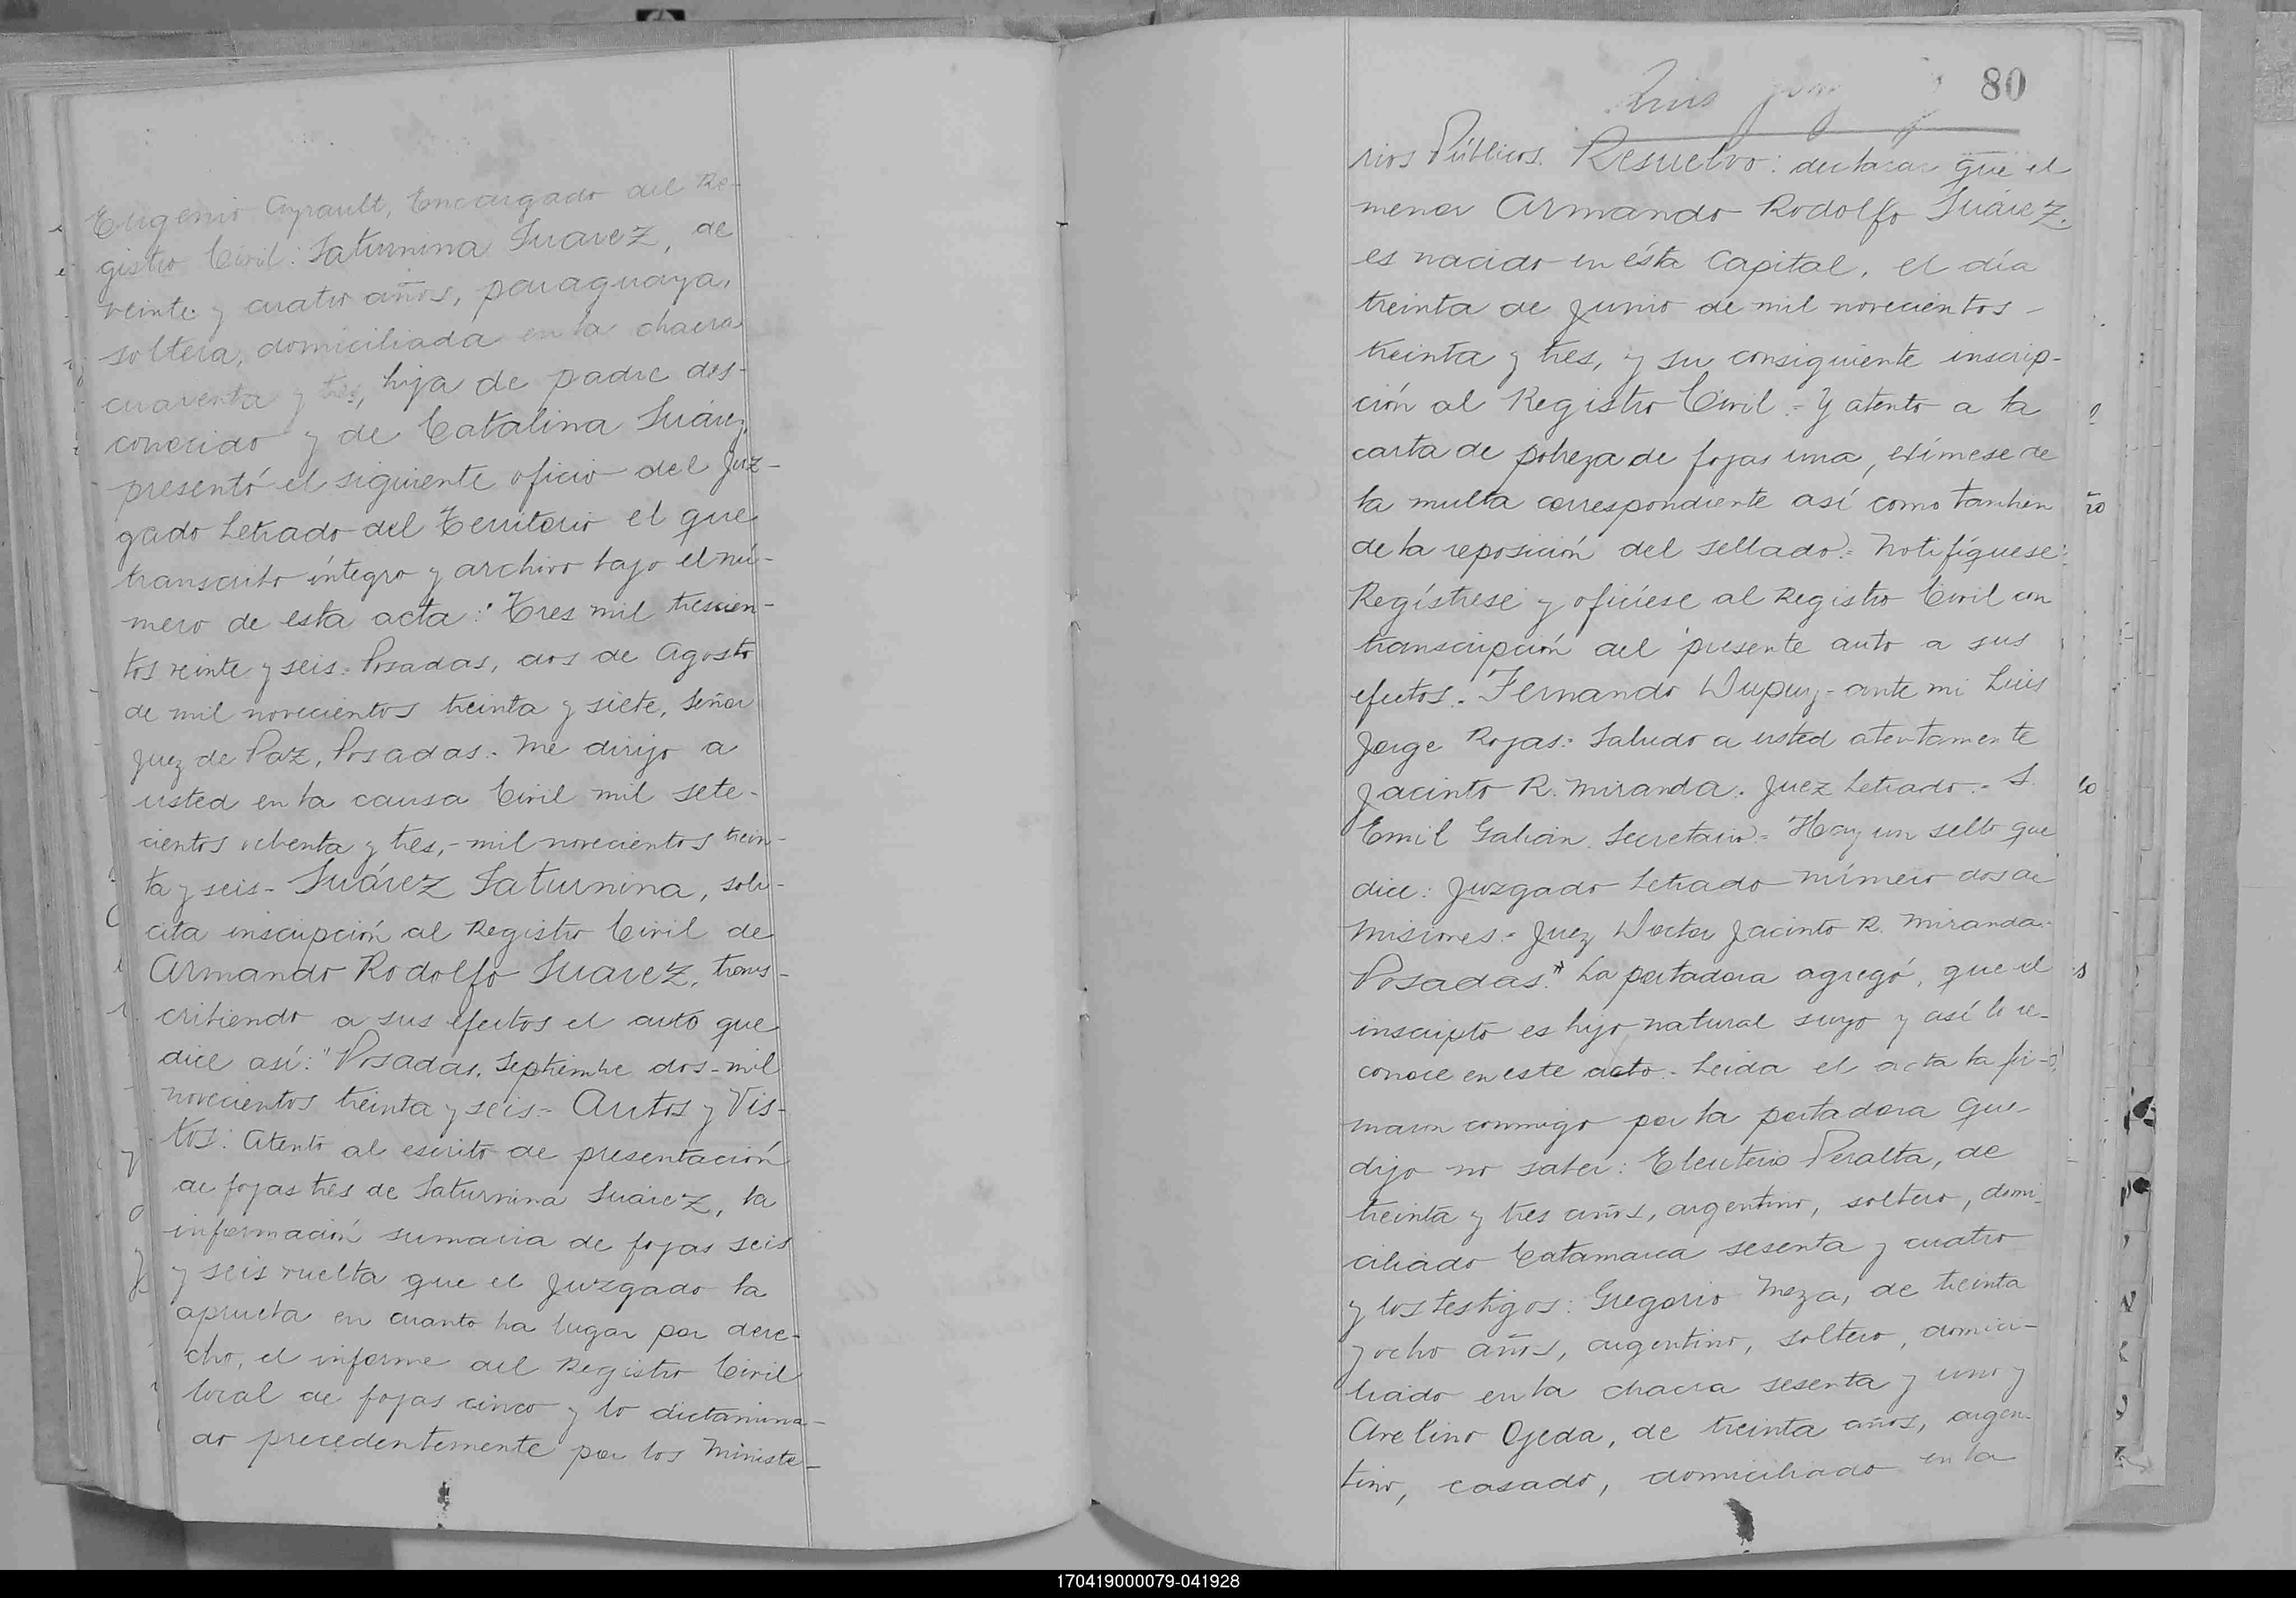 Eugenio Ayrault, Encargado del Re-
gistro Civil: Saturnina Suarez, de
veinte y cuatro años, paraguaya,
soltera, domiciliada en la chacra
cuarenta y tres, hija de padre des-
conocido y de Catalina Suárez,
presentó el siguiente oficio del Juz-
gado Letrado del Territorio el que
transcribo íntegro y archivo bajo el nú-
mero de esta acta: "Tres mil trescien-
tos veinte y seis.= Posadas, dos de Agosto
de mil novecientos treinta y siete, Señor
Juez de Paz, Posadas.- Me dirijo a
usted en la causa Civil mil sete-
cientos ochenta y tres,- mil novecientos trein-
ta y seis- Suárez Saturnina, soli-
cita inscripción al Registro Civil de
Armando Rodolfo Suarez, trans-
cribiendo a sus efectos el auto que
dice así: "Posadas, Septiembre dos-mil
novecientos treinta y seis.- Autos y Vis-
tos: Atento al escrito de presentación
de fojas tres de Saturnina Suárez, la
información sumaria de fojas seis
y seis vuelta que el Juzgado la
aprueba en cuanto ha lugar por dere-
cho, el informe del Registro Civil
local de fojas cinco y lo dictamina-
do precedentemente por los Ministe-
80
Luis
rios Públicos. Resuelvo: declarar que el
menor Armando Rodolfo Suárez,
es nacido en ésta Capital, el día
treinta de Junio de mil novecientos -
treinta y tres, y su consiguiente inscrip-
ción al Registro Civil.- Y atento a la
carta de pobreza de fojas una, exímese de
la multa correspondiente así como tambien
de la reposición del sellado.= Notifíquese:
Regístrese y ofíciese al Registro Civil con
transcripción del presente auto a sus
efectos.- Fernando Dupuy- ante mi Luis
Jorge Rojas.= Saludo a usted atentamente
Jacinto R. Miranda. Juez Letrado.- S.
Emil Galián. Secretario.= Hay un sello que
dice: Juzgado Letrado número dos de
Misiones.- Juez Doctor Jacinto R. Miranda.-
Posadas." La portadora agregó, que el
inscripto es hijo natural suyo y así lo re-
conoce en este acto.- Leida el acta la fir-
maron conmigo por la portadora que
dijo no saber: Eleuterio Peralta, de
treinta y tres años, argentino, soltero, domi-
ciliado Catamarca sesenta y cuatro
y los testigos: Gregorio Meza, de treinta
y ocho años, argentino, soltero, domici-
liado en la chacra sesenta y uno y
Avelino Ojeda, de treinta años, argen-
tino, casado, domiciliado en la
170419000079-041928